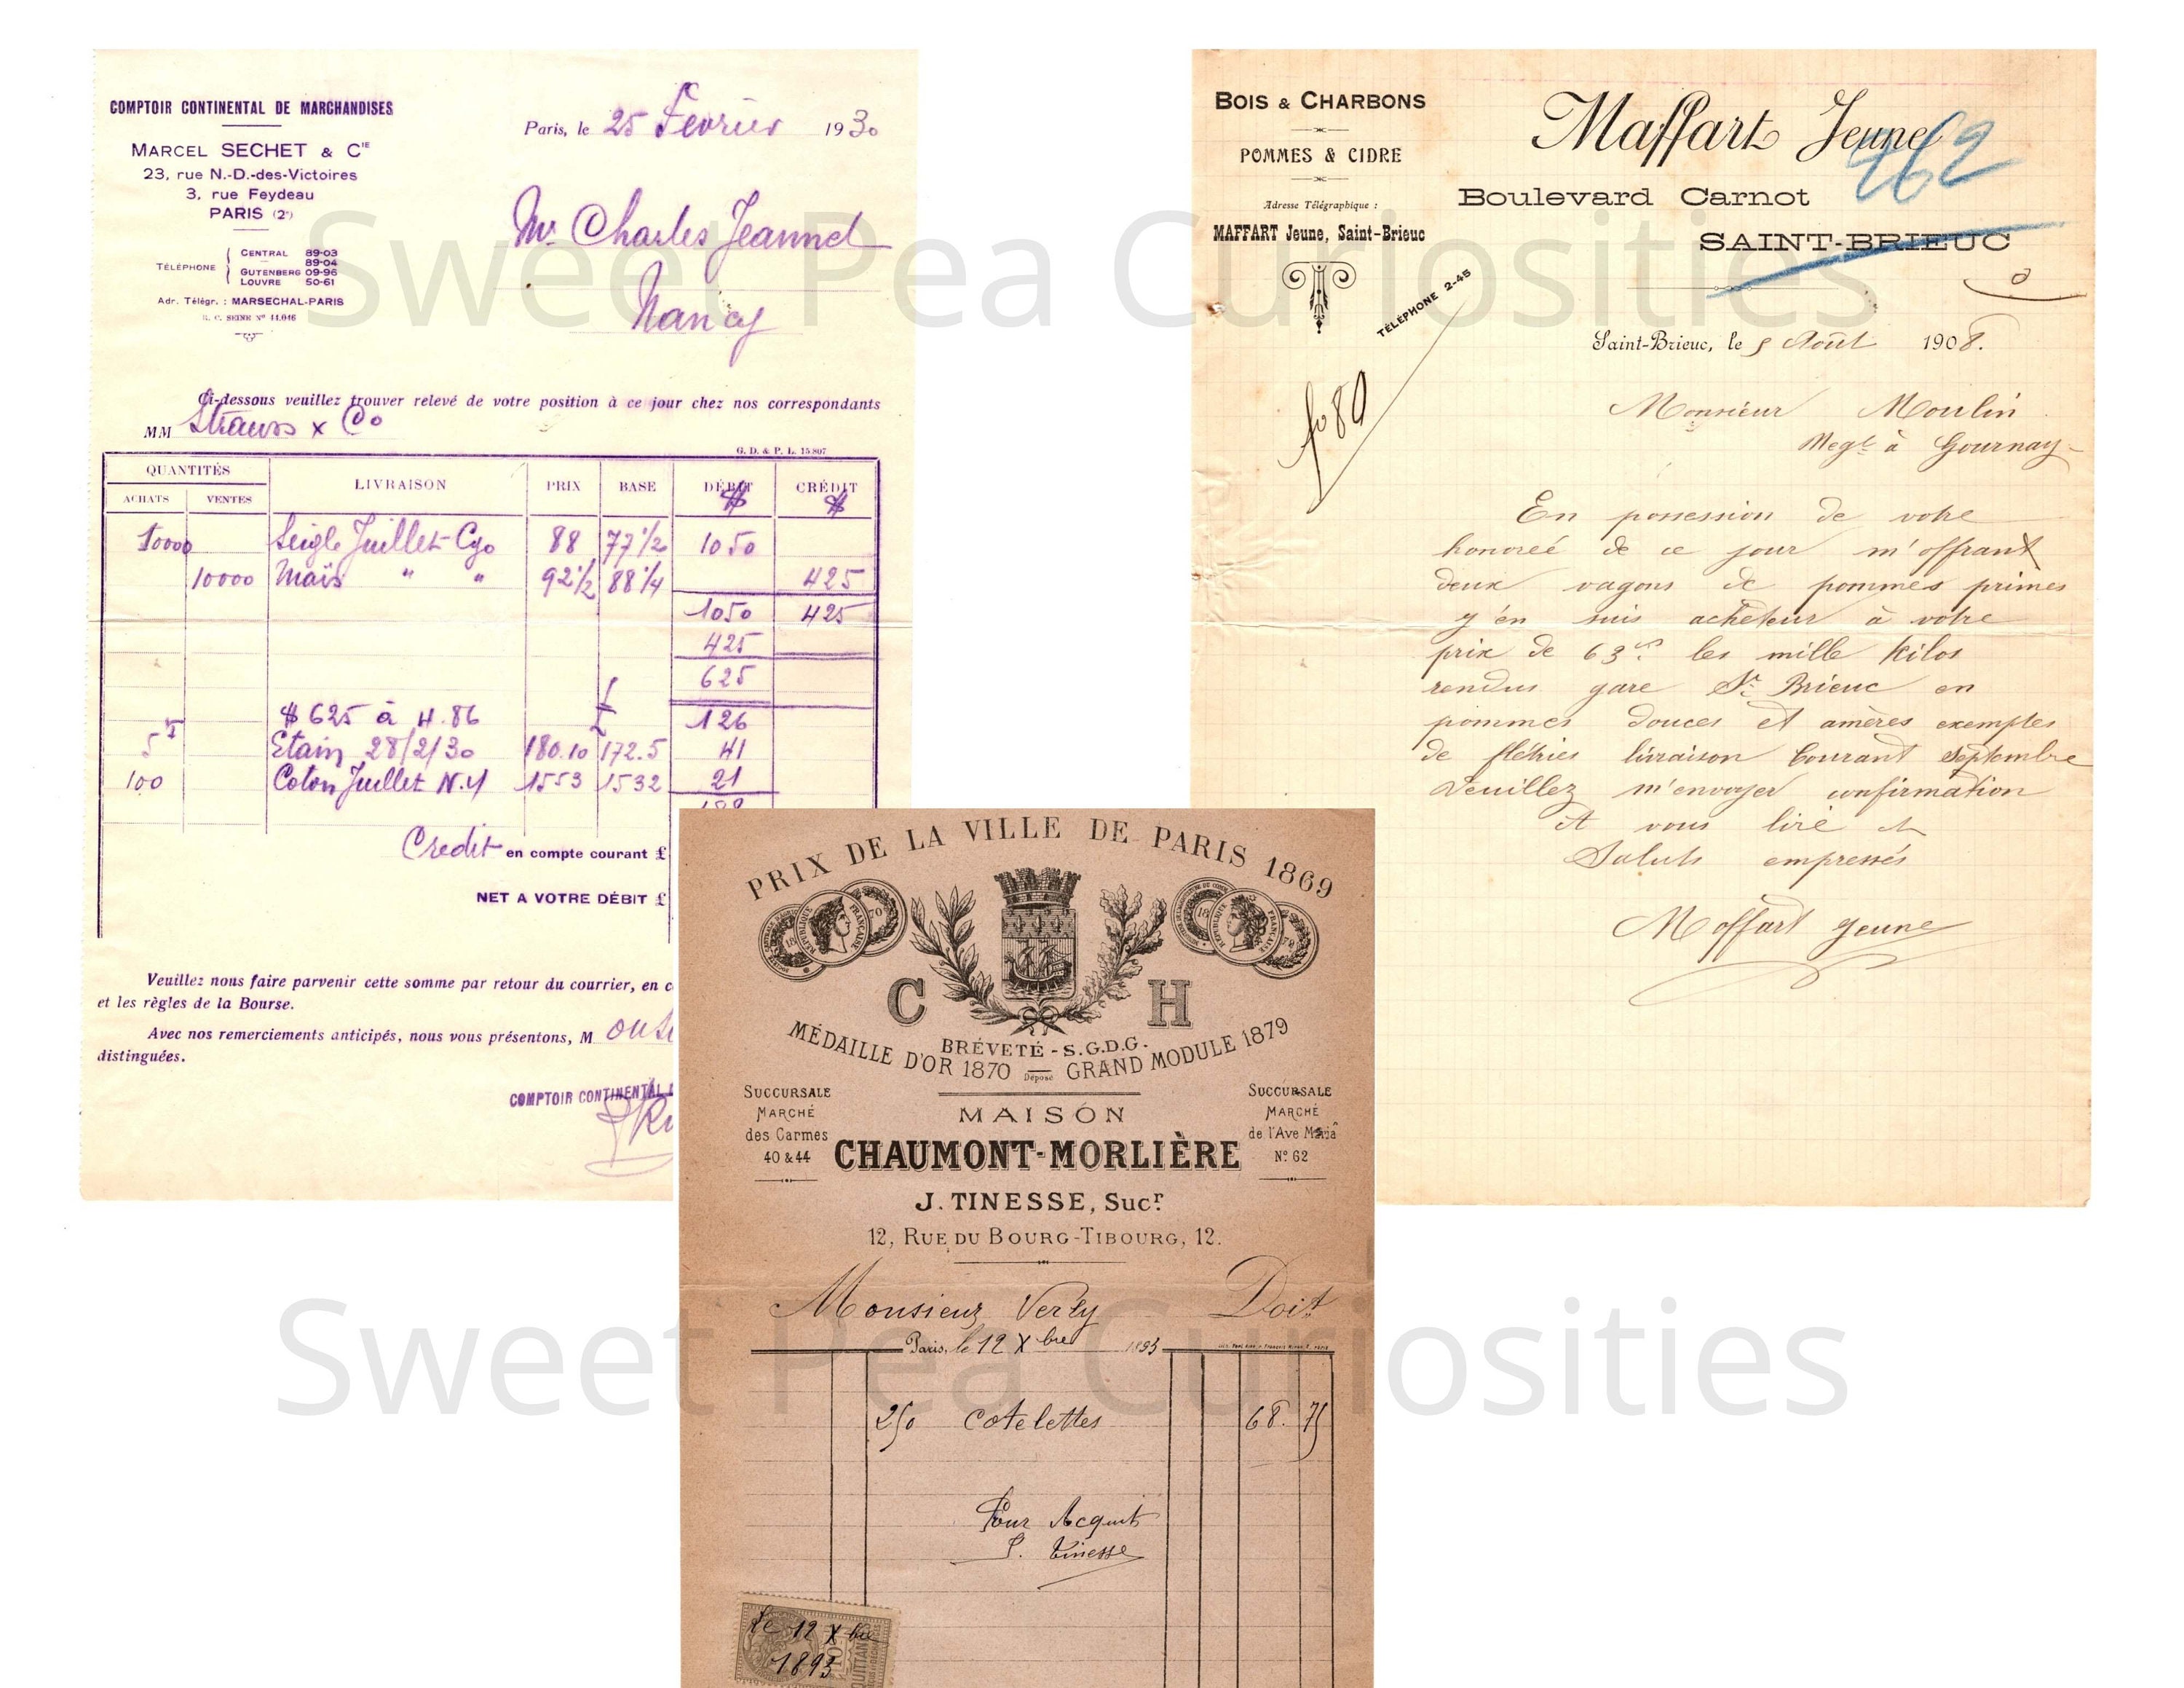 COMPTOIR CONTINENTAL DE MARCHANDISES
MARCEL SECHET & CIE
23, rue N.-D.-des-Victoires
3, rue Feydeau
PARIS (2e)
TÉLÉPHONE
CENTRAL 89-03
89-04
GUTENBERG 09-96
LOUVRE 50-61
Adr. Télégr. : MARSECHAL-PARIS
R. C. SEINE No 44.046
Paris, le 25 Fevrier 1930
Mr Charles Jeannel
Nancy
Ci-dessous veuillez trouver relevé de votre position à ce jour chez nos correspondants
MM Strauss & Co
G. D. & P. L. 15.807
QUANTITÉS LIVRAISON PRIX BASE DÉBIT CRÉDIT
ACHATS VENTES $ $
10000 Seigle Juillet-Cgo 88 77 1/2 1050
10000 Maïs " " 92 1/2 88 1/4 425
1050 425
425
625
$ 625 à 4.86 £ 126
5T Etain 28/2/30 180.10 172.5 41
100 Coton Juillet N.Y 1553 1532 21
Credit en compte courant £
NET A VOTRE DÉBIT £
Veuillez nous faire parvenir cette somme par retour du courrier, en c
et les règles de la Bourse.
Avec nos remerciements anticipés, nous vous présentons, M
distinguées.
COMPTOIR CONTINENTAL
BOIS & CHARBONS
POMMES & CIDRE
Adresse Télégraphique :
MAFFART Jeune, Saint-Brieuc
TÉLÉPHONE 2-45
Maffart Jeune
462
Boulevard Carnot
SAINT-BRIEUC
fo 80
Saint-Brieuc, le 5 Août 1908.
Monsieur Moulin
Negt à Gournay
En possession de votre
honoreé de ce jour m'offrant
deux vagons de pommes primes
j'en suis acheteur à votre
prix de 63 les mille kilos
rendus gare St Brieuc en
pommes douces et amères exemptes
de flétries livraison Courant Septembre
Veuillez m'envoyer confirmation
A vous lire et
Saluts empressés
Maffart Jeune
PRIX DE LA VILLE DE PARIS 1869
C H
BRÉVETÉ - S.G.D.G.
MÉDAILLE D'OR 1870 Déposé GRAND MODULE 1879
SUCCURSALE
MARCHÉ
des Carmes
40 & 44
SUCCURSALE
MARCHÉ
de l'Ave Maria
No 62
MAISON
CHAUMONT-MORLIÈRE
J. TINESSE, Sucr
12, RUE DU BOURG-TIBOURG, 12.
Monsieur Verly Doit
Paris, le 12 Xbre 1893
250 cotelettes 68. 75
Pour Acquit
J. Tinesse
Le 12 Xbre
1893
Sweet Pea Curiosities
Sweet Pea Curiosities